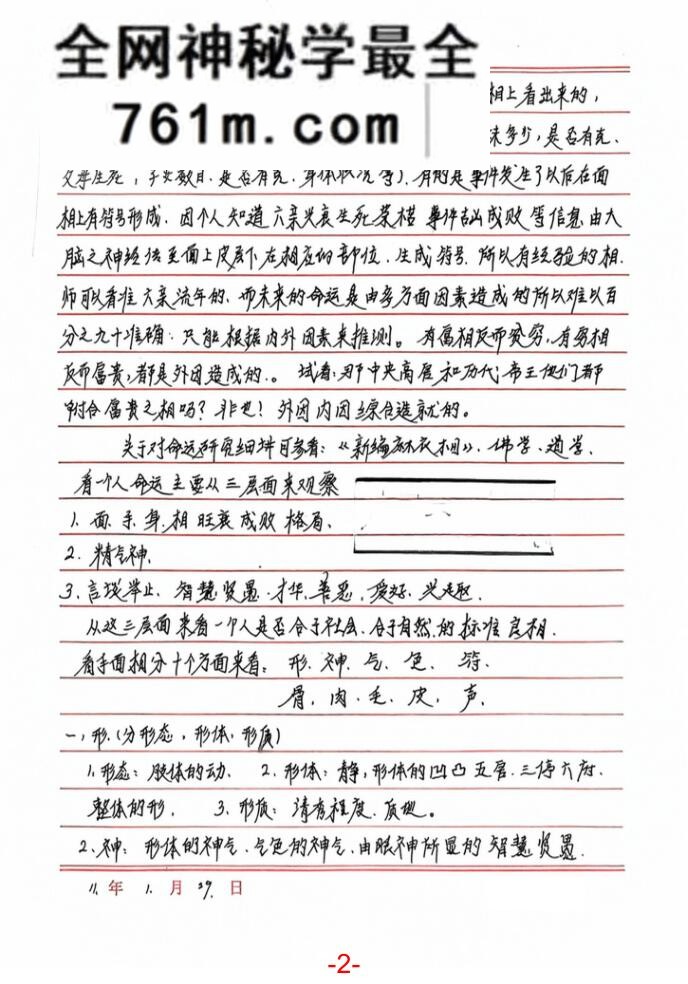 全网神秘学最全
761m.com
相上看出来的,
未多少,是否有克、
父母生死,子女数目、是否有克、身体状况等)。有的是事件发生了以后在面
相上有符号形成。因个人知道六亲兴衰生死荣枯 事件吉凶成败等信息由大
脑之神经传至面上皮层下在相应的部位、生成符号、所以有经验的相
师可以看准六亲流年的、而未来的命运是由多方面因素造成的所以难以百
分之九十准确、只能根据内外因素来推测。有富相反而贫穷,有穷相
反而富贵,都是外因造成的。试看:那中央高层和历代帝王他们都
附合富贵之相吗?非也!外因内因综合造就的。
关于对命运研究细讲可参看:《新编麻衣相》、佛学、道学、
看一个人命运主要从三层面来观察
1. 面、手、身、相 旺衰成败 格局、
2. 精气神、
3. 言谈举止、智慧贤愚、才华、善恶、爱好、兴趣、
从这三层面来看一个人是否合于社会、合于自然、的标准良相、
看手面相分十个方面来看: 形、神、气、色、符、
骨、肉、毛、皮、声、
一、形、(分形态,形体、形质)
1、形态:肢体的动、 2、形体:静,形体的凹凸五官、三停六府、
整体的形、 3、形质:清者程度、质地。
2、神:形体的神气、气色的神气、由眼神所显的智慧贤愚、
11. 年 1. 月 29. 日
-2-